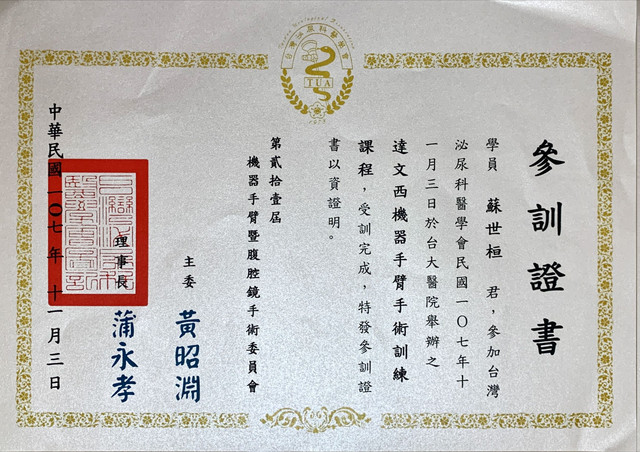 Taiwan Urological Association
台灣泌尿科醫學會
TUA
1978
參訓證書
學員 蘇世桓 君，參加台灣
泌尿科醫學會民國一〇七年十
一月三日於台大醫院舉辦之
達文西機器手臂手術訓練
課程，受訓完成，特發參訓證
書以資證明。
第貳拾壹屆
機器手臂暨腹腔鏡手術委員會
主委 黃昭淵
理事長 蒲永孝
中華民國一〇七年十一月三日